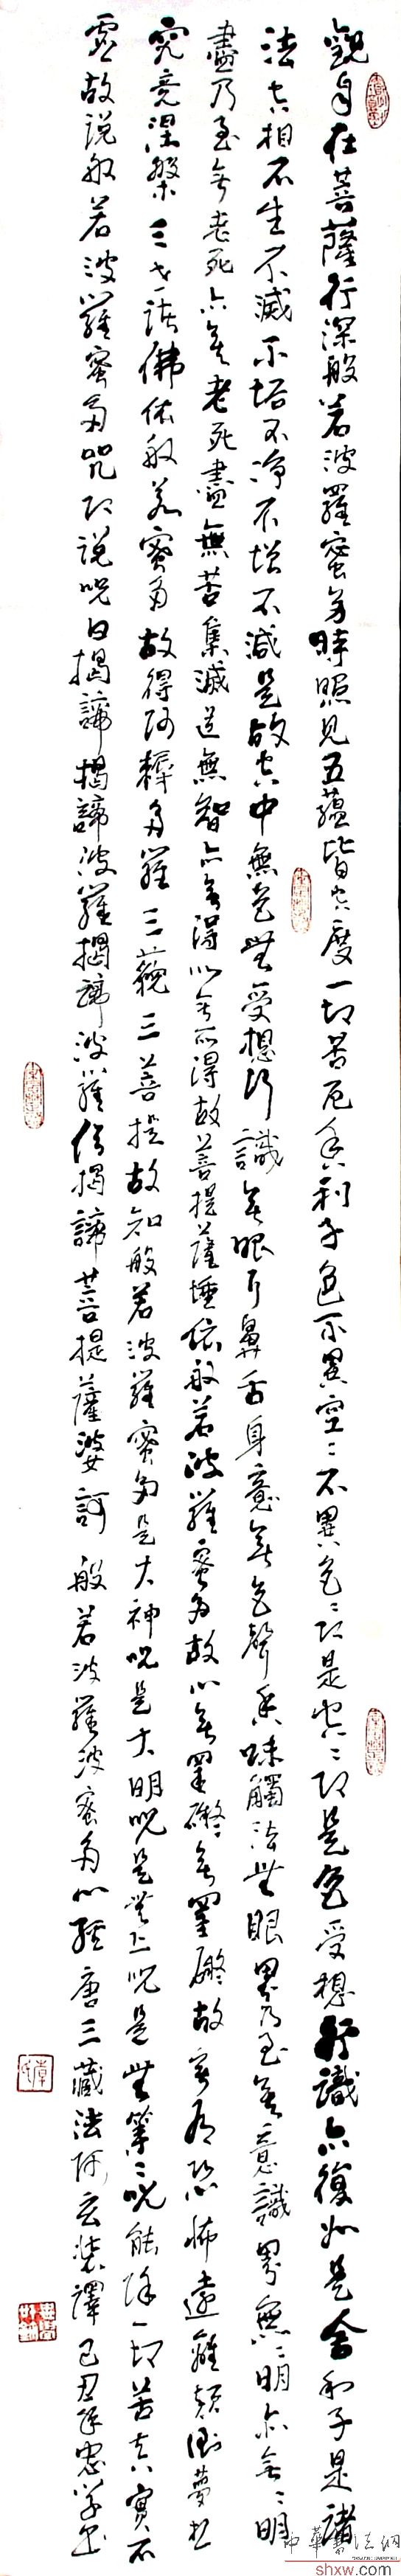 觀自在菩薩行深般若波羅蜜多時照見五蘊皆空度一切苦厄舍利子色不異空〻不異色〻即是空〻即是色受想行識亦復如是舍利子是諸
法空相不生不滅不垢不淨不增不減是故空中無色無受想行識無眼耳鼻舌身意無色聲香味觸法無眼界乃至無意識界無〻明亦無〻明
盡乃至無老死亦無老死盡無苦集滅道無智亦無得以無所得故菩提薩埵依般若波羅蜜多故心無罣礙無罣礙故無有恐怖遠離顛倒夢想
究竟涅槃三世諸佛依般若蜜多故得阿耨多羅三藐三菩提故知般若波羅蜜多是大神咒是大明咒是無上咒是無等〻咒能除一切苦真實不
虛故說般若波羅蜜多咒即說咒曰揭諦揭諦波羅揭諦波羅僧揭諦菩提薩婆訶 般若波羅波蜜多心經唐三藏法師玄奘譯己丑年忠學書
中華書法網
shxw.com